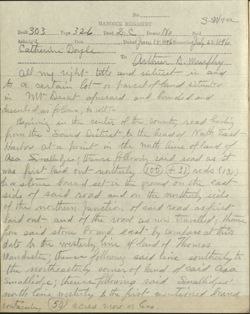 HANCOCK REGISTRY
Book 303 Page 326 Deed Q.C.
Catherine Doyle to Arthur B. Murphy
All my right title and interest in and
to a certain lot or parcel of land situated
in Mt Desert aforesaid and bounded and
described as follows, to wit:
Beginning in the center of the county road leading
from the Sound District to the head of North East
Harbor at a point in the north line of land of
Asa Smallidge; thence following said road as it
was first laid out northerly
to a stone bound set in the ground on the east
side of said road and on the northerly side
of the northern junction of said road as first
laid out and of the road as now travelled; thence
from said stone bound east by compass at this
date to the westerly line of land of Thomas
Manchester; thence following said line southerly to
the northeasterly corner of land of said Asa
Smallidge; thence following said Smallidge's
north line westerly to the first mentioned bound
containing (50) acres more or less